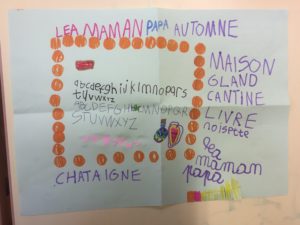 LEA MAMAN PAPA AUTOMNE
abcdefghijklmnopqrs
tuvwxyz
ABCDEFGHIJKLMNOPQR
STUVWXYZ
MAISON
GLAND
CANTINE
LIVRE
noisette
léa
maman
papa
CHATAIGNE